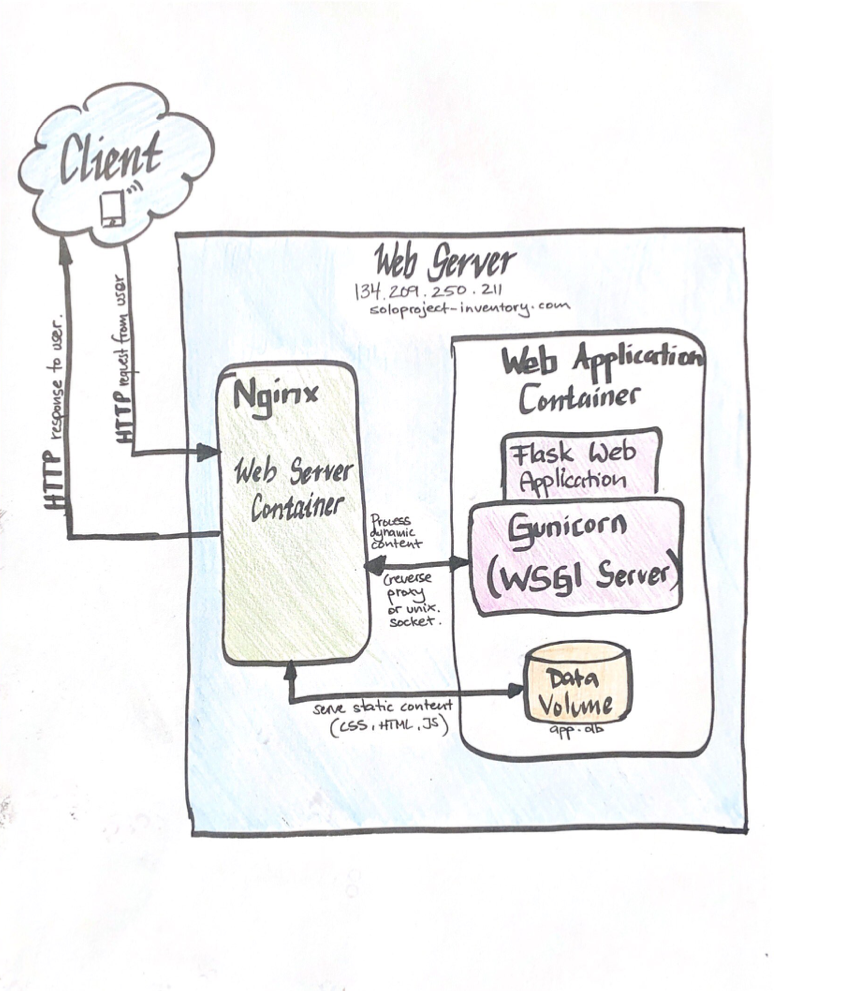 Client
HTTP request from user
HTTP response to user.
Web Server
134.209.250.211
soloproject-inventory.com
Nginx
Web Server
Container
Process
dynamic
content
(reverse
proxy
or unix.
socket.
Web Application
Container
Flask Web
Application
Gunicorn
(WSGI Server)
Data
Volume
app.db
serve static content
(CSS, HTML, JS)